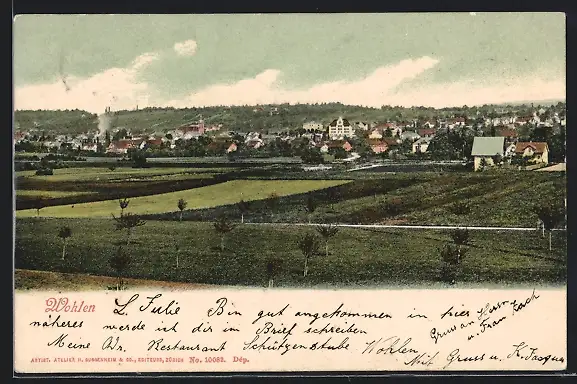 Wohlen
L. Julie Bin gut angekommen in hier
näheres werde ich dir im Brief schreiben
Meine Adr. Restaurant Schützenstube Wohlen
Gruss an Herrn
u. Frau Koch
Mit Gruss u. K. Jacques
ARTIST. ATELIER H. GUGGENHEIM & CO., EDITEURS, ZÜRICH No. 10085. Dép.